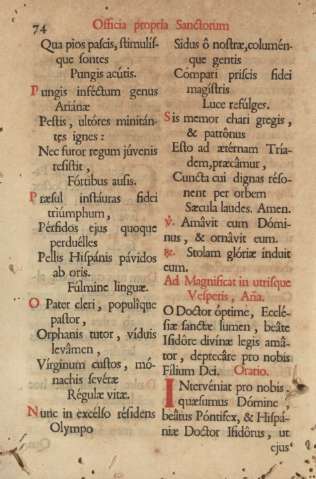 74
Officia propria Sanctorum
Qua pios pascis, stimulís-
que sontes
Pungis acútis.
Pungis inféctum genus
Arriánæ
Pestis, ultóres minitán-
tes ignes:
Nec furor regum júvenis
resistit,
Fórtibus ausis.
Præsul instáuras fidei
triúmphum,
Pérfidos ejus quoque
perduélles
Pellis Hispánis pávidos
ab oris.
Fúlmine linguæ.
O Pater cleri, populíque
pastor,
Orphanis tutor, víduis
levâmen,
Vírginum custos, mó-
nachis sevéræ
Régulæ vitæ.
Nunc in excélso résidens
Olympo
Sidus ô nostræ, columén-
que gentis
Compari priscis fidei
magistris
Luce refúlges.
Sis memor chari gregis,
& patrônus
Esto ad ætérnam Tría-
dem, præcâmur,
Cuncta cui dignas réso-
nent per orbem
Sæcula laudes. Amen.
℣. Amâvit eum Dómi-
nus, & ornâvit eum.
℟. Stolam glóriæ induit
eum.
Ad Magnificat in utrisque
Vesperis, Aña.
O Doctor óptime, Ecclé-
siæ sanctæ lumen, beâte
Isidóre divínæ legis amâ-
tor, deptecáre pro nobis
Filium Dei. Oratio.
INtervéniat pro nobis,
quæsumus Dómine,
beâtus Póntifex, & Hispá-
niæ Doctor Isidôrus, ut
ejus